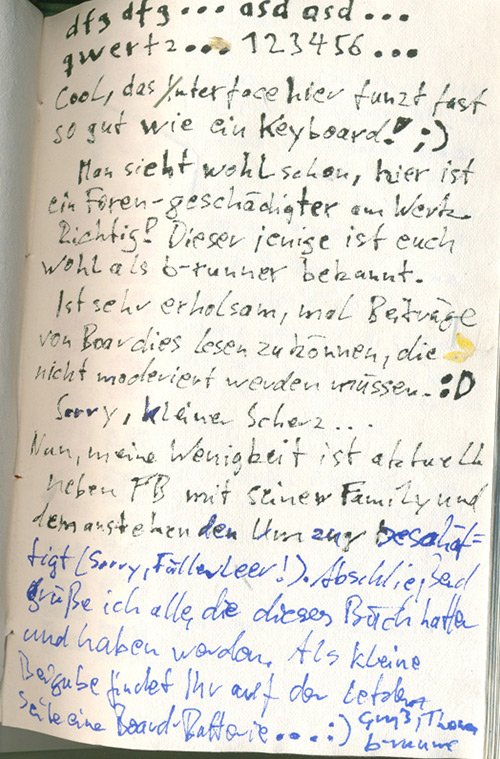 dfg dfg ... asd asd ...
qwertz ... 123456 ...
Cool, das Interface hier funzt fast
so gut wie ein Keyboard! ;)
Man sieht wohl schon, hier ist
ein Foren-geschädigter am Werk.
Richtig! Dieser jenige ist euch
wohl als b-runner bekannt.
Ist sehr erholsam, mal Beiträge
von Boardies lesen zu können, die
nicht moderiert werden müssen. :D
Sorry, kleiner Scherz...
Nun, meine Wenigkeit ist aktuell
neben FB mit seiner Family und
dem anstehenden Umzug beschäf-
tigt (Sorry, Füller leer!). Abschließend
grüße ich alle, die dieses Buch hatten
und haben werden. Als kleine
Beigabe findet Ihr auf der letzten
Seite eine Board-Batterie... :) Gruß, Thomas
b-runner